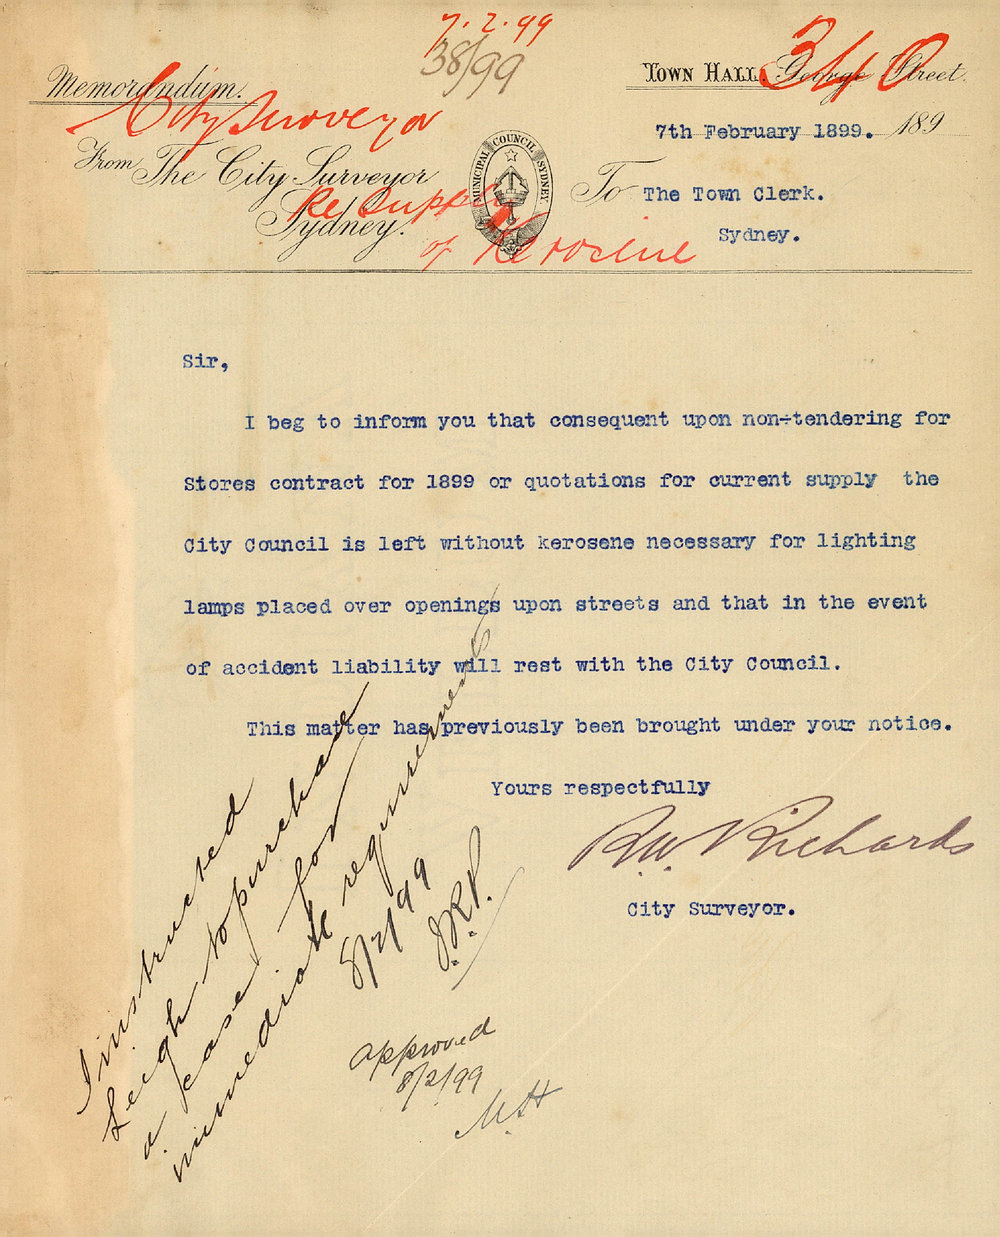 7.2.99
38/99
340
Memorandum.
Town Hall. George Street.
City Surveyor
7th February 1899. 189
From The City Surveyor
Sydney.
MUNICIPAL COUNCIL SYDNEY
To The Town Clerk.
Sydney.
Re Supply
of Kerosene
Sir,
I beg to inform you that consequent upon non-tendering for
Stores contract for 1899 or quotations for current supply the
City Council is left without kerosene necessary for lighting
lamps placed over openings upon streets and that in the event
of accident liability will rest with the City Council.
This matter has previously been brought under your notice.
Yours respectfully
R.W. Richards
City Surveyor.
I instructed
Leigh to purchase
a case for
immediate requirements
8/2/99
Approved
8/2/99